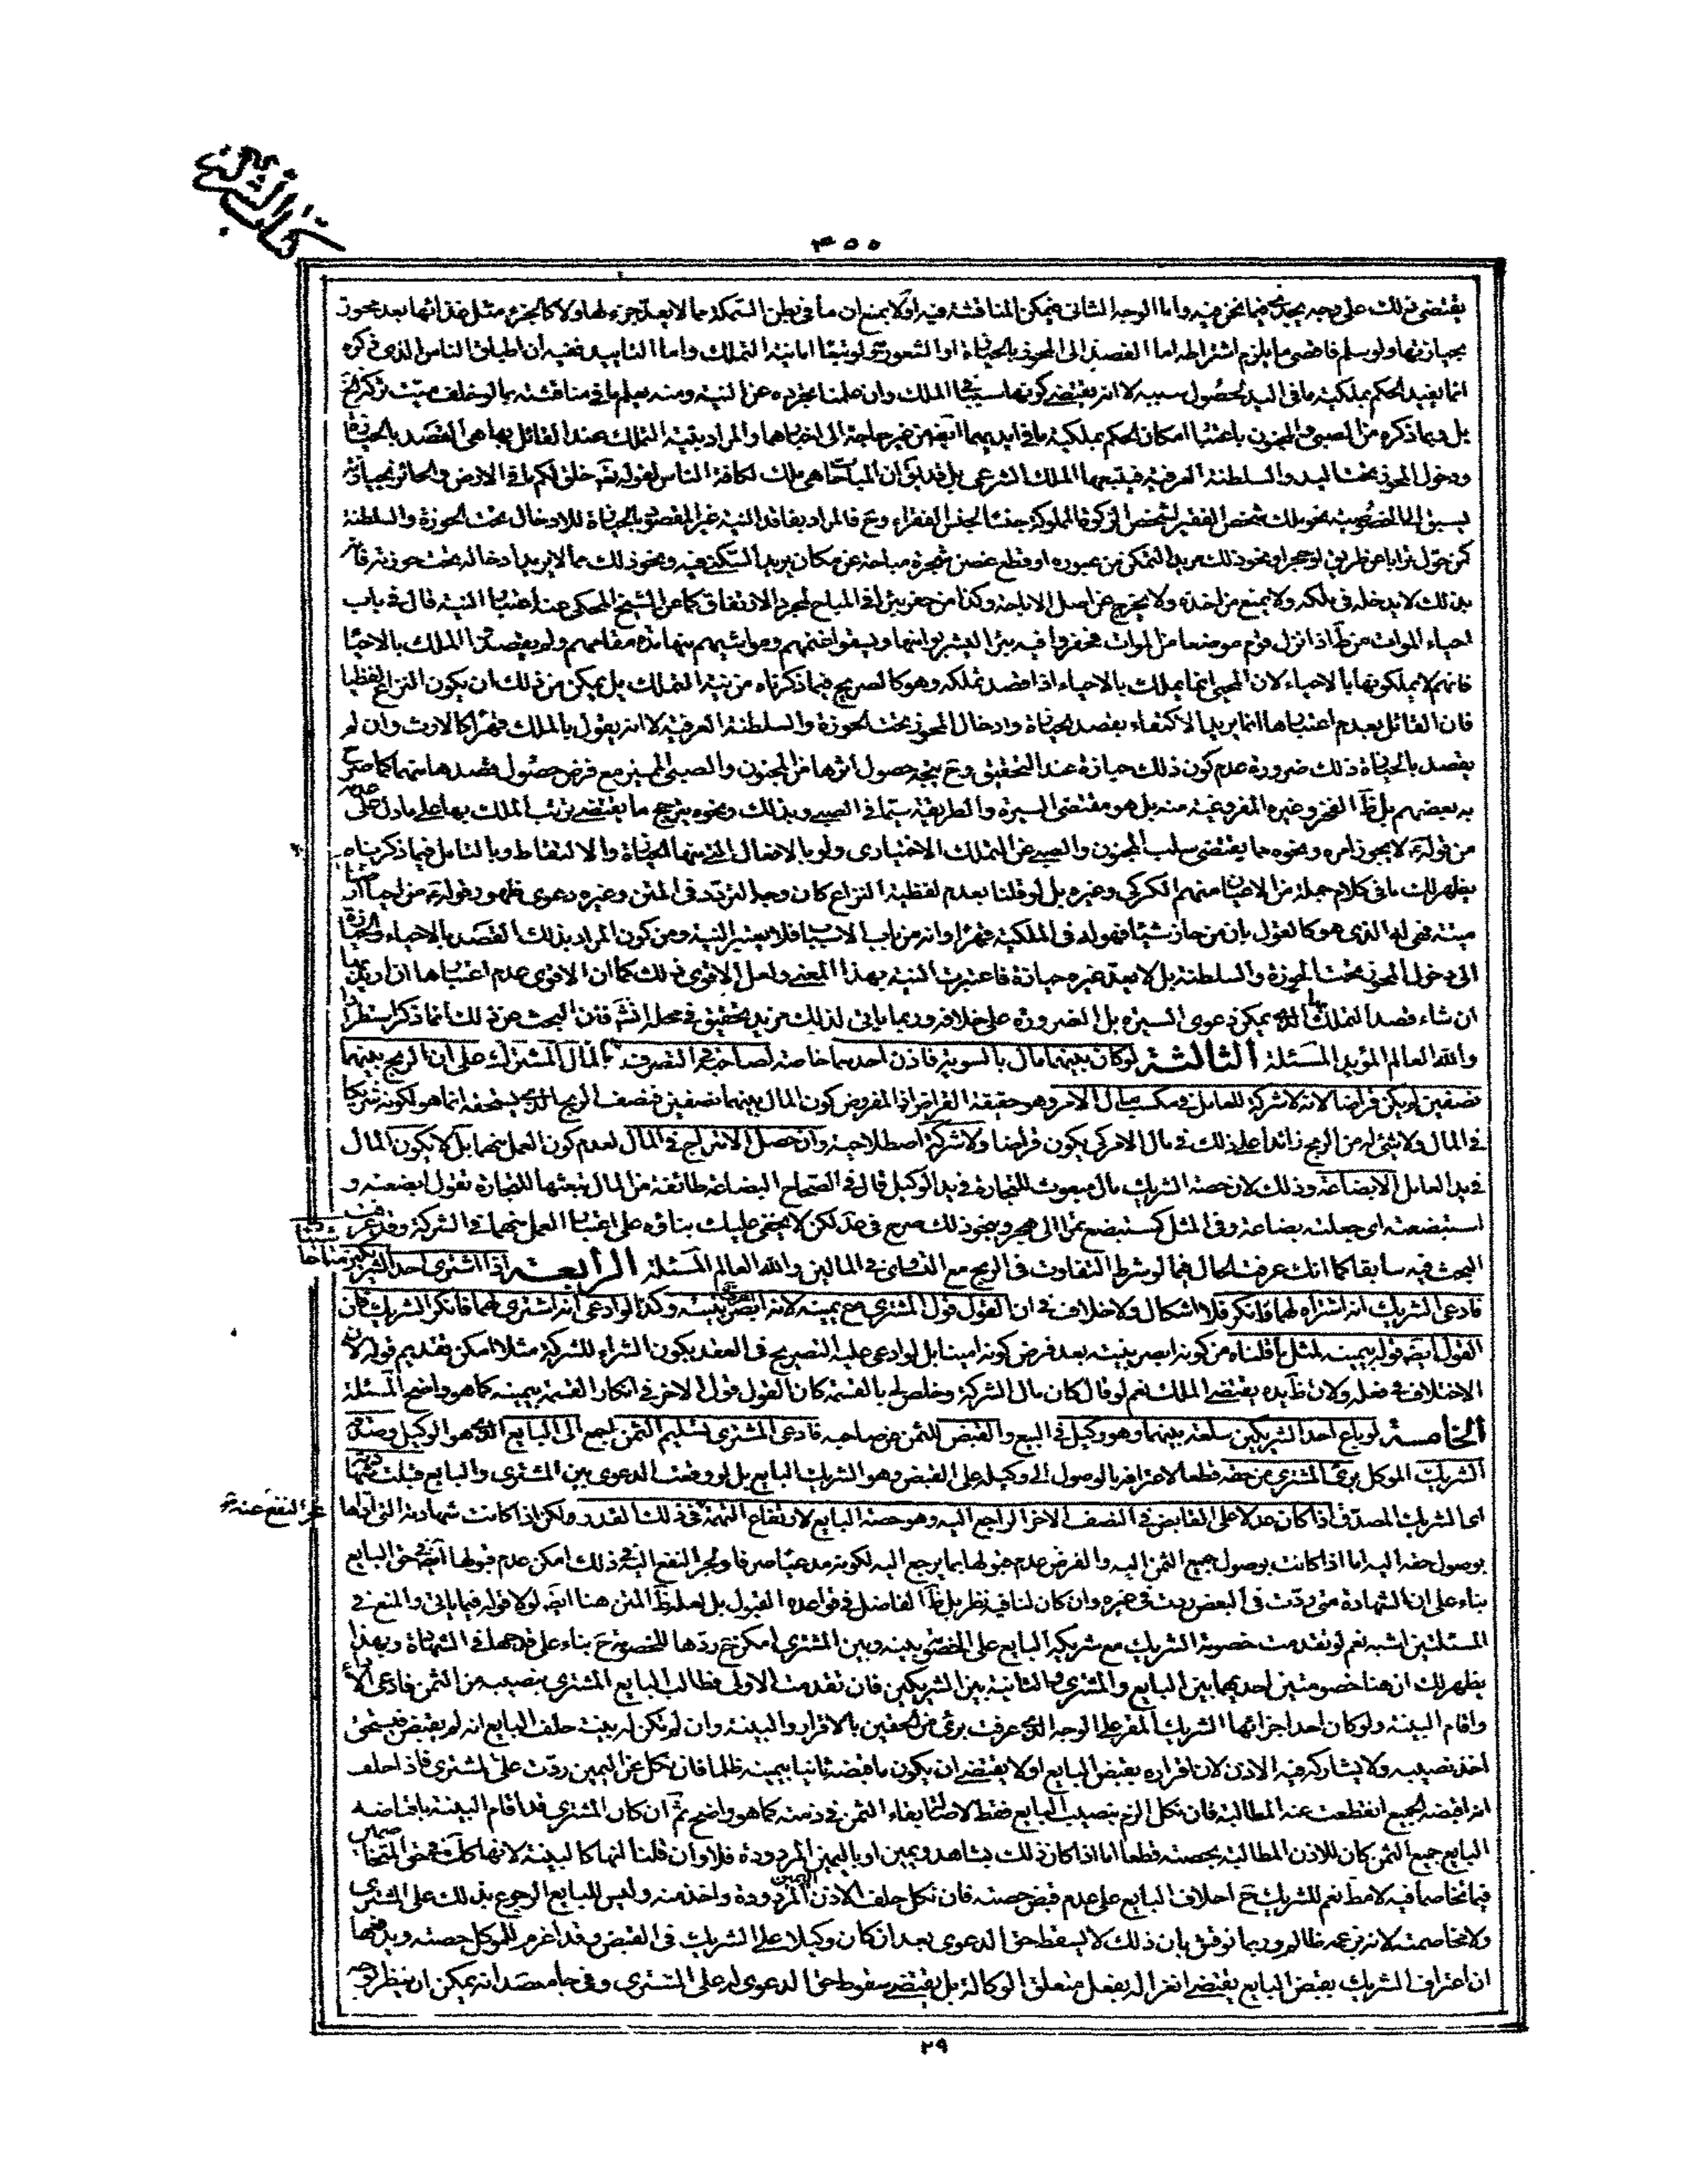 كتاب الشركة
٣٥٥
يقتضى ذلك على وجه يجدى فيما نحن فيه واما الوجه الثانى فيمكن المناقشة فيه اولا بمنع ان ما فى بطن السمكة مما لا يعد جزء لها ولا كالجزء مثل غذائها بعد محوز
بحيازتها ولو سلم فاقصى ما يلزم اشتراطه اما القصد الى المحوز بالحيازة او الشعور به ولو تبعا اما نية التملك واما التاييد ففيه ان اطباق الناس الذى ذكره
انما يفيد الحكم بملكية ما فى اليد لحصول سببه لا انه يقتضى كونها سببا فى الملك وان علمنا تجرده عن النية ومنه يعلم ما فى مناقشته بما لو خلف ميت تركة الخ
بل وبما ذكره من الصبى والمجنون باعتبار امكان الحكم بملكية ما فى ايديهما ايضا من غير حاجة الى اختبارهما والمراد بنية التملك عند القائل بها هى القصد بالحيازة
ودخول المحوز تحت اليد والسلطنة العرفية فيتبعها الملك الشرعى بل قد يقال ان المباحات هى ملك لكافة الناس لقوله تعالى خلق لكم ما فى الارض والحائز بحيازته
يسبق الى الخصوصية نحو ملك شخص الفقير لشخص الزكوة المملوكة جنسا لجنس الفقراء وح فالمراد بفاقد النية غير المقصود بالحيازة للادخال تحت الحوزة والسلطنة
كمن حول ترابا عن طريق او حجرا ونحو ذلك مريدا التمكن من عبوره او قطع غصن شجرة مباحة عن مكان يريد السكنى فيه ونحو ذلك مما لا يريد ادخاله تحت حوزته فانه
بذلك لا يدخله فى ملكه ولا يمنع من اخذه ولا يخرج عن اصل الاباحة وكذا من حفر بئرا فى المباح لمجرد الارتفاق كما عن الشيخ المحكى عنه اعتبار النية قال فى باب
احياء الموات من ط اذا نزل قوم موضعا من الموات فحفروا فيه بئرا ليشربوا منها ويسقوا غنمهم ومواشيهم منها مدة مقامهم ولم يقصدوا الملك بالاحياء
فانهم لا يملكونها بالاحياء لان المحيى انما يملك بالاحياء اذا قصد تملكه وهو كالصريح فيما ذكرناه من نية التملك بل يمكن من ذلك ان يكون النزاع لفظيا
فان القائل بعدم اعتبارها انما يريد الاكتفاء بقصد الحيازة وادخال المحوز تحت الحوزة والسلطنة العرفية لا انه يقول بالملك قهرا كالارث وان لم
يقصد بالحيازة ذلك ضرورة عدم كون ذلك حيازة عند التحقيق وح يتجه حصول اثرها من المجنون والصبى المميز مع فرض حصول قصدها منهما كما صرح
به بعضهم بل ظ الفخر وغيره المفروغية منه بل هو مقتضى السيرة والطريقة سيما فى الصبى وبذلك ونحوه يترجح ما يقتضى ترتب الملك بها على ما دل على عدمه
من قوله ع لا يجوز امره ونحوه مما يقتضى سلب المجنون والصبى عن التملك الاختيارى ولو بالافعال التى منها الحيازة والالتقاط وبالتامل فيما ذكرناه
يظهر لك ما فى كلام جملة من الاعيان منهم الكركى وغيره بل لو قلنا بعدم لفظية النزاع كان وجه التردد فى المتن وغيره دعوى ظهور قوله ع من احيا ارضا
ميتة فهى له الذى هو كالقول بان من حاز شيئا فهو له فى الملكية قهرا وانه من باب الاسباب فلا يعتبر النية ومن كون المراد بذلك القصد بالاحياء والحيازة
الى دخول المحوز تحت الحوزة والسلطنة بل لا يعد غيره حيازة فاعتبرت النية بهذا المعنى ولعل الاقوى ذلك كما ان الاقوى عدم اعتبارها ان اريد بها
ان شاء قصد التملك الذى يمكن دعوى السيرة بل الضرورة على خلافه وربما ياتى لذلك مزيد تحقيق فى محله انش فان البحث عن ذلك انما ذكر استطرادا
والله العالم المؤيد المسئلة الثالثة لو كان بينهما مال بالسوية فاذن احدهما خاصة لصاحبه فى التصرف فى المال المشترك على ان الربح بينهما
نصفين لم يكن قراضا لانه لا شركة للعامل فى مكسب مال الامر وهو حقيقة القراض اذ المفروض كون المال بينهما نصفين فنصف الربح الذى يستحقه انما هو لكونه شريكا
فى المال ولا شئ له من الربح زائدا على ذلك فى مال الامر كى يكون قراضا ولا شركة اصطلاحية وان حصل الامتزاج فى المال لعدم كون العمل منهما بل لا يكون المال
فى يد العامل الا بضاعة وذلك لان حصة الشريك مال مبعوث للتجارة فى يد الوكيل قال فى الصحاح البضاعة طائفة من المال تبعثها للتجارة تقول ابضعته و
استبضعته اى جعلته بضاعة وفى المثل كمستبضع تمرا الى هجر ونحو ذلك صرح فى عد لكن لا يخفى عليك بناؤه على اعتبار العمل منهما فى الشركة وقد عرفت
البحث فيه سابقا كما انك عرفت الحال فيما لو شرط التفاوت فى الربح مع التساوى فى المالين والله العالم المسئلة الرابعة اذا اشترى احد الشريكين متاعا
فادعى الشريك انه اشتراه لهما فانكر فلا اشكال ولا خلاف فى ان القول قول المشترى مع يمينه لانه ابصر بنيته وكذا لو ادعى انه اشترى لهما فانكر الشريك فان
القول ايضا قوله بيمينه لمثل ما قلناه من كونه ابصر بنيته بعد فرض كونه امينا بل لو ادعى عليه التصريح فى العقد بكون الشراء للشركة مثلا امكن تقديم قوله لان
الاختلاف فى فعله ولان ظ يده يقتضى الملك نعم لو قال كان مال الشركة وخلص لى بالقسمة كان القول قول الاخر فى انكار القسمة بيمينه كما هو واضح المسئلة
الخامسة لو باع احد الشريكين سلعة بينهما وهو وكيل فى البيع والقبض للثمن عن صاحبه فادعى المشترى تسليم الثمن اجمع الى البايع الذى هو الوكيل وصدقه
الشريك الموكل برئ المشترى من حقه قطعا لاعترافه بالوصول الى وكيله على القبض وهو الشريك البايع بل لو وقعت الدعوى بين المشترى والبايع قبلت شهادته
اى الشريك المصدق اذا كان عدلا على القابض فى النصف الاخر الراجع اليه وهو حصة البايع لارتفاع التهمة فى ذلك القدر ولكن اذا كانت شهادته التى اداها
بوصول حقه اليه اما اذا كانت بوصول جميع الثمن اليه والفرض عدم قبولها بما يرجع اليه لكونه مدعيا صرفا ولجر النفع اليه فى ذلك امكن عدم قبولها ايضا فى حق البايع
بناء على ان الشهادة متى ردت فى البعض ردت فى غيره وان كان لنا فيه نظر بل ظ الفاضل فى قواعده القبول بل لعله ظ المتن هنا ايضا لولا قوله فيما ياتى والمنع فى
المسئلتين اشبه نعم لو تقدمت خصومة الشريك مع شريكه البايع على الخصومة بينه وبين المشترى امكن ح ردها للخصومة ح بناء على قدحها فى الشهادة وبهذا
يظهر لك ان هنا خصومتين احديهما بين البايع والمشترى والثانية بين الشريكين فان تقدمت الاولى فطالب البايع المشترى بنصيبه من الثمن فادعى الاداء
واقام البينة ولو كان احد اجزائها الشريك المقر على الوجه الذى عرفت برئ من الحقين بالاقرار والبينة وان لم تكن له بينة حلف البايع انه لم يقبض فيستحق
اخذ نصيبه ولا يشاركه فيه الاذن لان اقراره بقبض البايع اولا يقتضى ان يكون ما قبضه ثانيا بيمينه ظلما فان نكل عن اليمين ردت على المشترى فاذا حلف
انه اقبضه الجميع انقطعت عنه المطالبة فان نكل الزم بنصيب البايع فقط لاصالة بقاء الثمن فى ذمته كما هو واضح ثم ان كان المشترى قد اقام البينة باقباضه
البايع جميع الثمن كان للاذن المطالبة بحصته قطعا اما اذا كان ذلك بشاهد ويمين او باليمين المردودة فلا وان قلنا انها كالبينة لانها كك فى حق المتخاصمين
فيما تخاصما فيه لا مط نعم للشريك ح احلاف البايع على عدم قبض حصته فان نكل حلف الاذن اليمين المردودة واخذ منه وليس للبايع الرجوع بذلك على المشترى
ولا مخاصمته لانه بزعمه ظالم وربما نوقش بان ذلك لا يسقط حق الدعوى بعد ان كان وكيلا على الشريك فى القبض وقد اغرم للموكل حصته ويدفعها
ان اعتراف الشريك بقبض البايع يقتضى انعزاله بفعل متعلق الوكالة بل يقتضى سقوط حق الدعوى له على المشترى وفى جامع صد انه يمكن ان ينظر وجه
٢٩